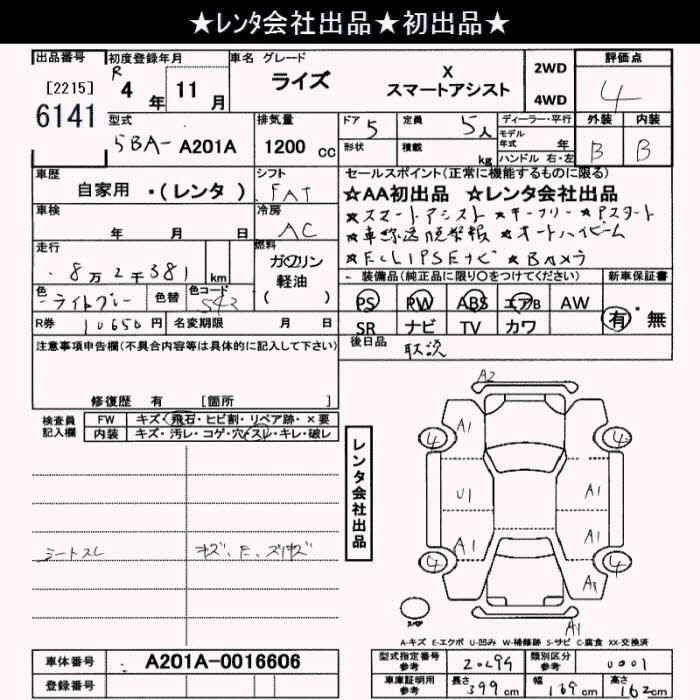 ★レンタ会社出品★初出品★
出品番号 初度登録年月 車名 グレード 評価点
[2215] R 4 年 11 月 ライズ X スマートアシスト 2WD 4WD 4
6141
型式 5BA- A201A 排気量 1200 cc ドア 5 定員 5人 ディーラー・平行 外装 内装
形状 積載 kg モデル年式 年 ハンドル 右・左 B B
車歴 自家用 ・(レンタ) シフト FAT セールスポイント(正常に機能するものに限る)
☆AA初出品 ☆レンタ会社出品
車検 年 月 日 冷房 AC ★スマートアシスト ★キーフリー ★Pスタート
★車線逸脱警報 ★オートハイビーム
走行 8万2千381 km 燃料 ガソリン 軽油 ( ) ★ECLIPSEナビ ★Bカメラ
装備品(純正品に限り○をつけてください) 新車保証書
色 ライトグレー 色替 色コード PS PW ABS エアB AW 有・無
R券 10650 円 名変期限 月 日 SR ナビ TV カワ
注意事項申告欄(不具合内容等は具体的に記入して下さい) 後日品 取説
修復歴 有 [箇所
検査員記入欄 FW キズ・飛石・ヒビ割・リペア跡・×要
内装 キズ・汚レ・コゲ・穴・スレ・キレ・破レ
レンタ会社出品
シートスレ
A2
A1
4 4
U1 A1
A1 A1
4 4
A1
スペア
A-キズ E-エクボ U-凹み W-補修跡 S-サビ C-腐食 XX-交換済
車体番号 A201A-0016606 型式指定番号 参考 20694 類別区分 参考 0001
登録番号 車庫証明用 参考 長さ 399 cm 幅 169 cm 高さ 162 cm